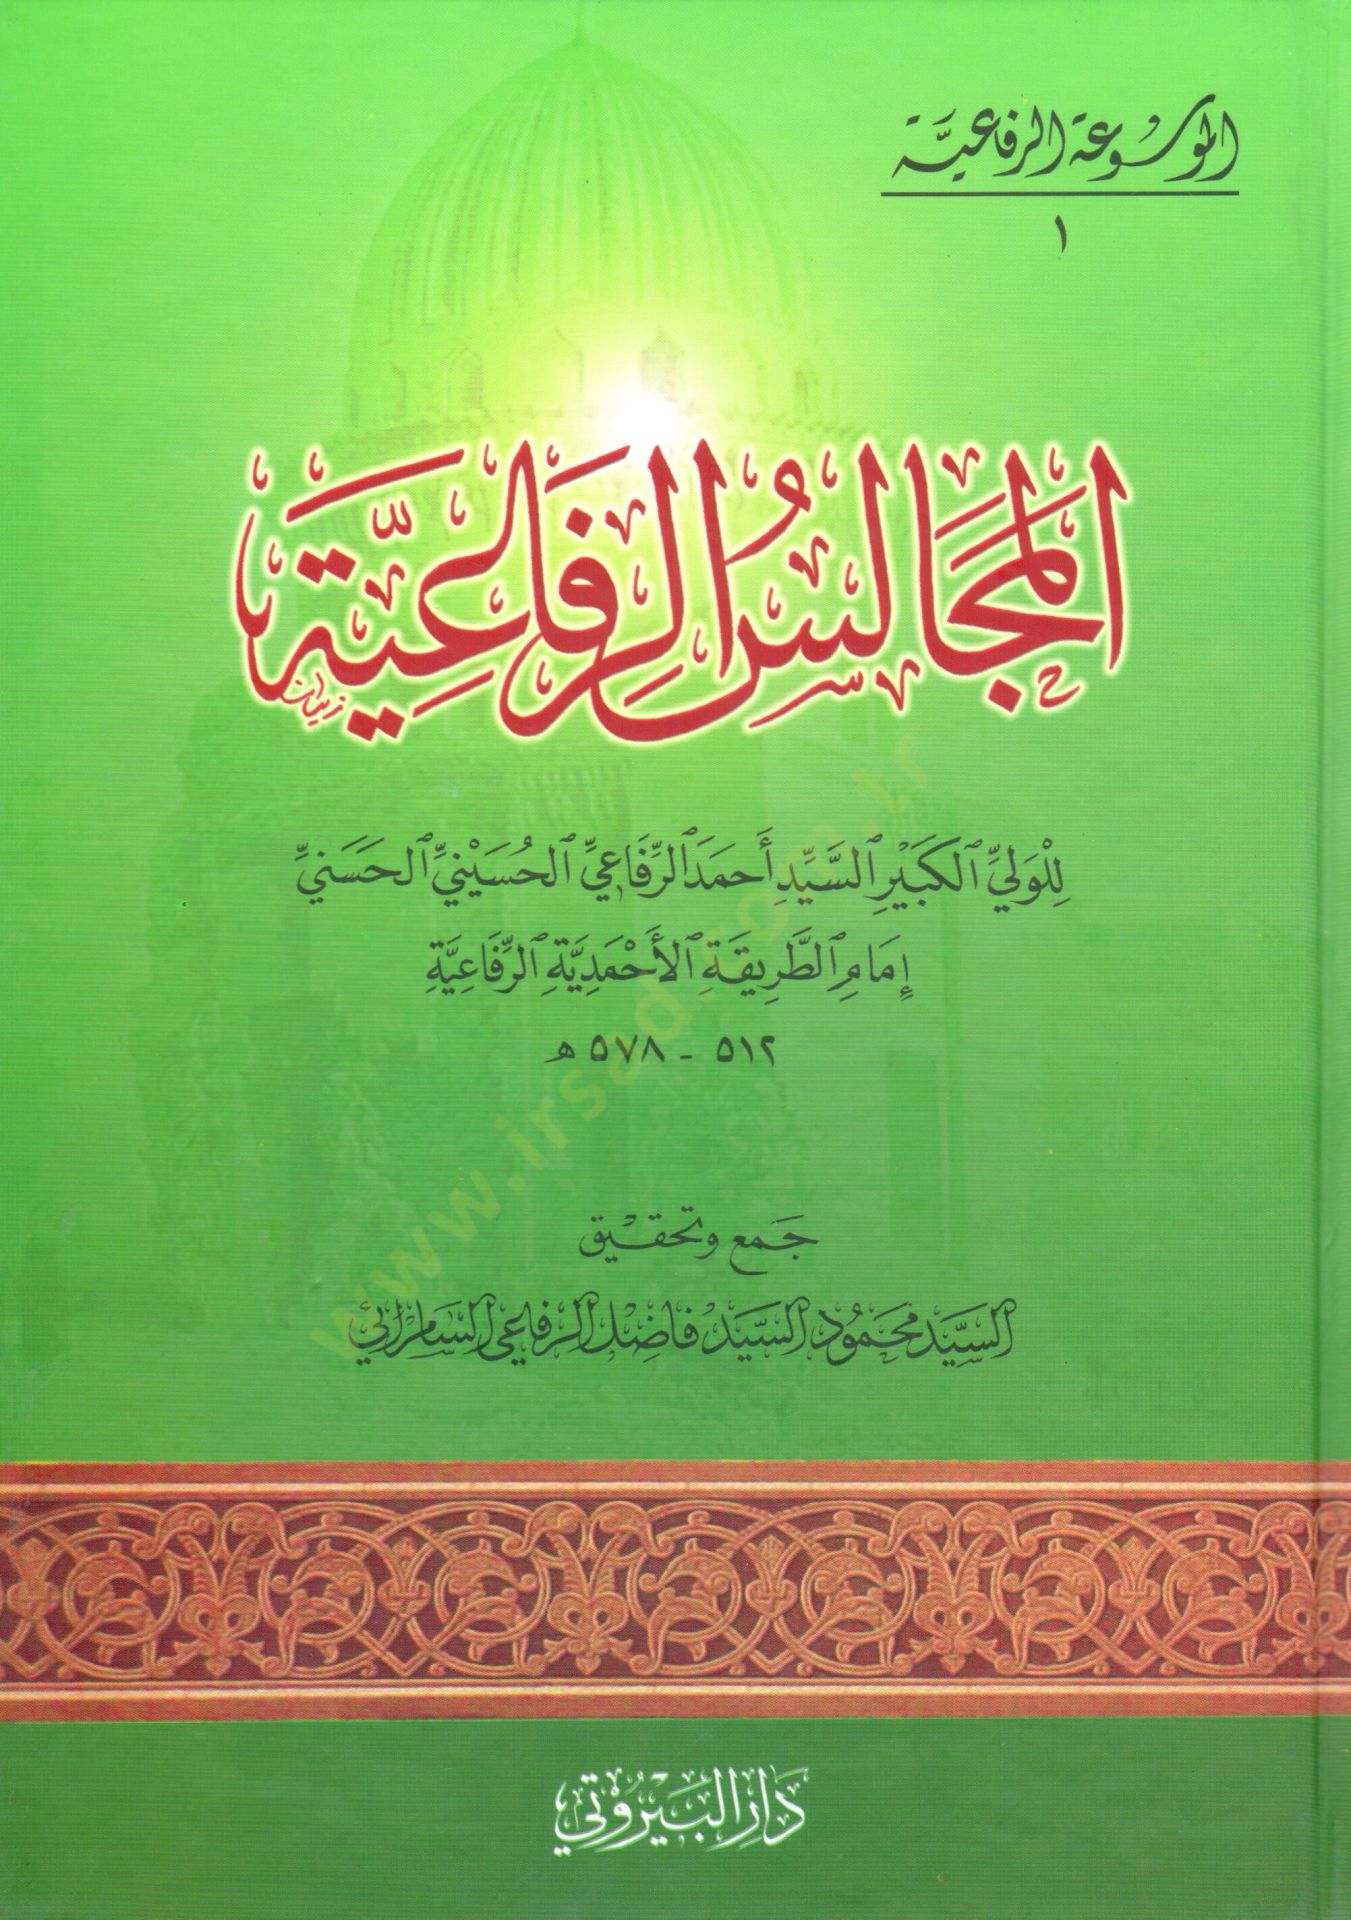 الموسوعة الرفاعية
١
المَجَالِسُ الرِّفَاعِيَّة
لِلْوَلِيِّ الكَبِيْرِ السَّيِّدِ أَحمَدَ الرِّفَاعِيِّ الحُسَيْنِيِّ الحَسَنِيِّ
إِمَامِ الطَّرِيقَةِ الأَحْمَدِيَّةِ الرِّفَاعِيَّةِ
٥١٢ - ٥٧٨ هـ
جَمع وتحقيْق
السيِّد محمود السيِّد فاضل الرفاعي السامرائي
دَار البَيْرُوتي
www.irsad.com.tr